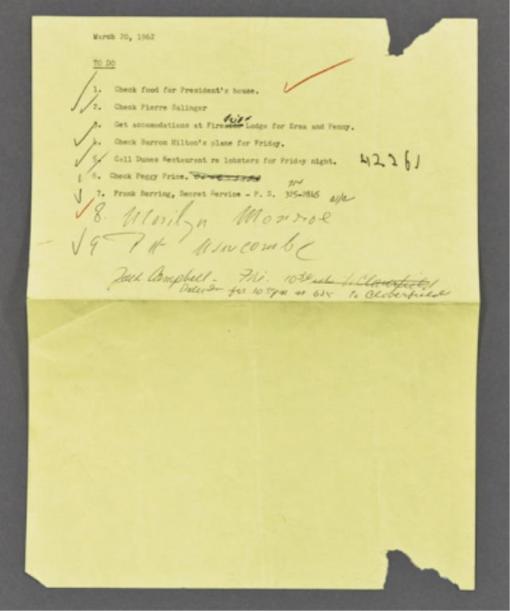 March 20, 1962
TO DO
1. Check food for President's house.
2. Check Pierre Salinger
3. Get accomodations at Lodge for Erma and Penny.
4. Check Barron Hilton's plane for Friday.
5. Call Dunes Restaurant re lobsters for Friday night. 42261
6. Check Peggy Price.
7. Frank Barring, Secret Service - P. S. 325-2845
8. Marilyn Monroe
9 Newcombe
Jack Campbell - Fri.
for 10 to Cloverfield